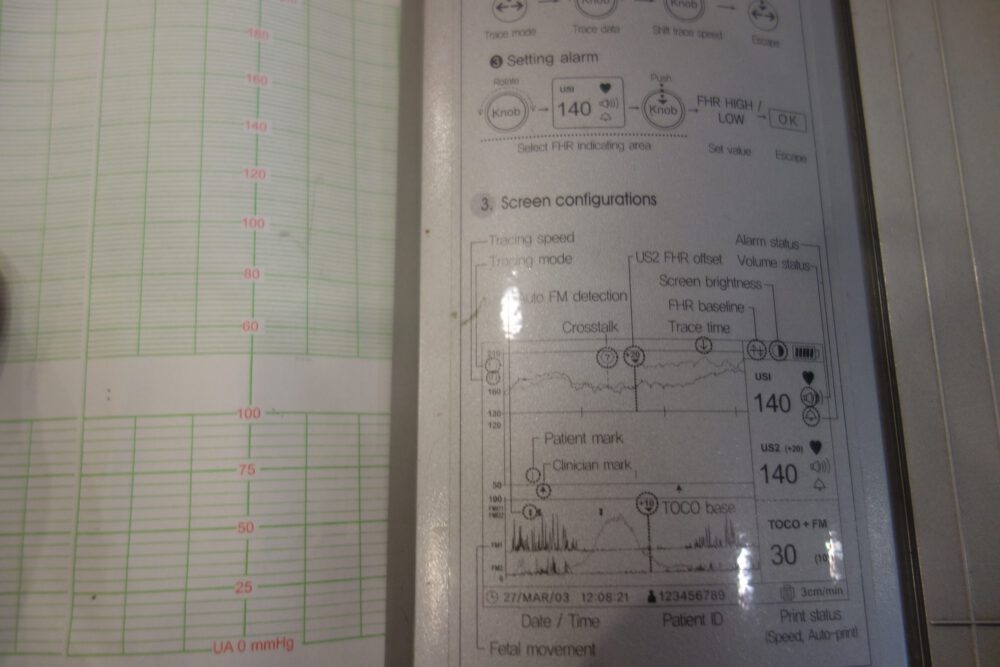 180
160
140
120
100
80
60
100
75
50
25
UA 0 mmHg
Knob
Knob
Trace mode
Trace data
Shift trace speed
Escape
3 Setting alarm
Rotate
Push
Knob
US1
140
Knob
FHR HIGH /
LOW
OK
Select FHR indicating area
Set value
Escape
3. Screen configurations
Tracing speed
Alarm status
Tracing mode
US2 FHR offset
Volume status
Screen brightness
Auto FM detection
FHR baseline
Crosstalk
Trace time
210
?
+20
160
US1
140
120
120
Patient mark
US2 (+20)
Clinician mark
140
50
190
+10
TOCO base
TOCO + FM
FM1
30
FM2
0
27/MAR/03 12:08:21
123456789
3cm/min
Date / Time
Patient ID
Print status
(Speed, Auto-print)
Fetal movement